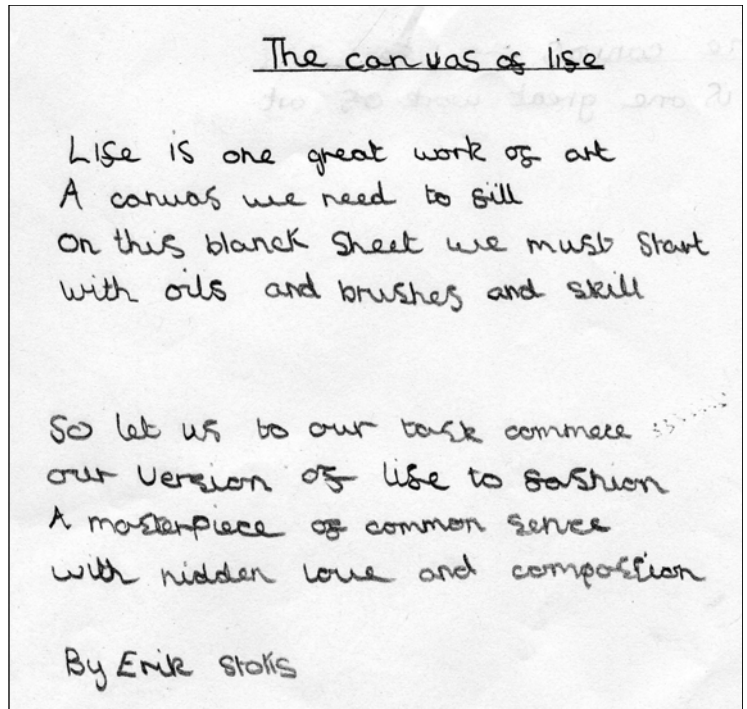 The canvas of life
Life is one great work of art
A canvas we need to fill
on this blanck sheet we must start
with oils and brushes and skill
So let us to our task commece
our version of life to fashion
A masterpiece of common sence
with hidden love and
By Erik